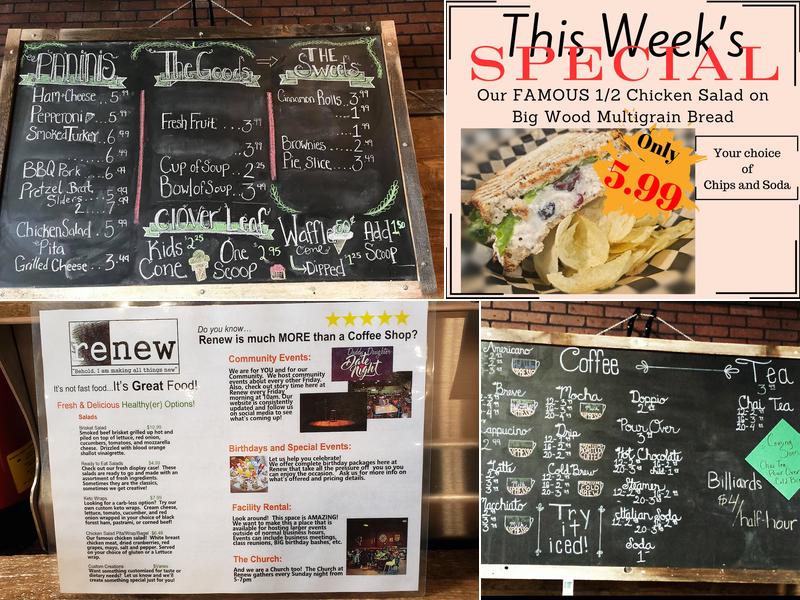 PANINIS
Ham & Cheese . . 5.99
Pepperoni . . 5.99
Smoked Turkey . . 6.99
. . . . . 6.99
BBQ Pork . . . 6.99
Pretzel Brat . . 5.99
Sliders
Chicken Salad . . 5.99
Pita
Grilled Cheese . . 3.49
The Goods
Fresh Fruit . . . 3.99
3.99
Cup of Soup . . 2.25
Bowl of Soup . . 3.49
THE Sweets
Cinnamon Rolls . 3.99
. . . 1.99
. . . 1.99
Brownies . . . 2.49
Pie, Slice . . . 3.49
Clover Leaf
Kids' $2.25
Cone
One $2.95
Scoop
Waffle 50¢
Cone
Dipped $1.25
Add 1.50
Scoop
This Week's
SPECIAL
Our FAMOUS 1/2 Chicken Salad on
Big Wood Multigrain Bread
Only
5.99
Your choice
of
Chips and Soda
renew
"Behold, I am making all things new"
It's not fast food...It's Great Food!
Fresh & Delicious Healthy(er) Options!
Salads
Brisket Salad $10.99
Smoked beef brisket grilled up hot and
piled on top of lettuce, red onion,
cucumbers, tomatoes, and mozzarella
cheese. Drizzled with blood orange
shallot vinaigrette.
Ready to Eat Salads
Check out our fresh display case! These
salads are ready to go and made with an
assortment of fresh ingredients.
Sometimes they are the classics,
sometimes we get creative!
Keto Wraps $7.99
Looking for a carb-less option? Try our
own custom keto wraps. Cream cheese,
lettuce, tomato, cucumber, and red
onion wrapped in your choice of black
forest ham, pastrami, or corned beef!
Chicken Salad Pita/Wrap/Bagel $6.49
Our famous chicken salad! White breast
chicken meat, dried cranberries, red
grapes, mayo, salt and pepper. Served
on your choice of gluten or a Lettuce
wrap.
Custom Creations $Varies
Want something customized for taste or
dietary needs? Let us know and we'll
create something special just for you!
Do you know…
Renew is much MORE than a Coffee Shop?
Community Events:
We are for YOU and for our
Community. We host community
events about every other Friday.
Also, check out story time here at
Renew every Friday
morning at 10am. Our
website is consistently
updated and follow us
on social media to see
what's coming up!
Daddy Daughter
Date
Night
Birthdays and Special Events:
Let us help you celebrate!
We offer complete birthday packages here at
Renew that take all the pressure off you so you
can enjoy the occasion. Ask us for more info on
what's offered and pricing details.
Facility Rental:
Look around! This space is AMAZING!
We want to make this a place that is
available for hosting larger events
outside of normal business hours.
Events can include business meetings,
class reunions, BIG birthday bashes, etc.
The Church:
And we are a Church too! The Church at
Renew gathers every Sunday night from
5-7pm
Coffee
Americano
Breve
Cappucino
2.99
Latte
Macchiato
Mocha
Drip
Cold Brew
Try
it
iced!
Doppio
Pour Over
Hot Chocolate
Steamer
Italian Soda
Soda
1
Tea
Chai Tea
Coming
Soon
Billiards
$4/
half-hour